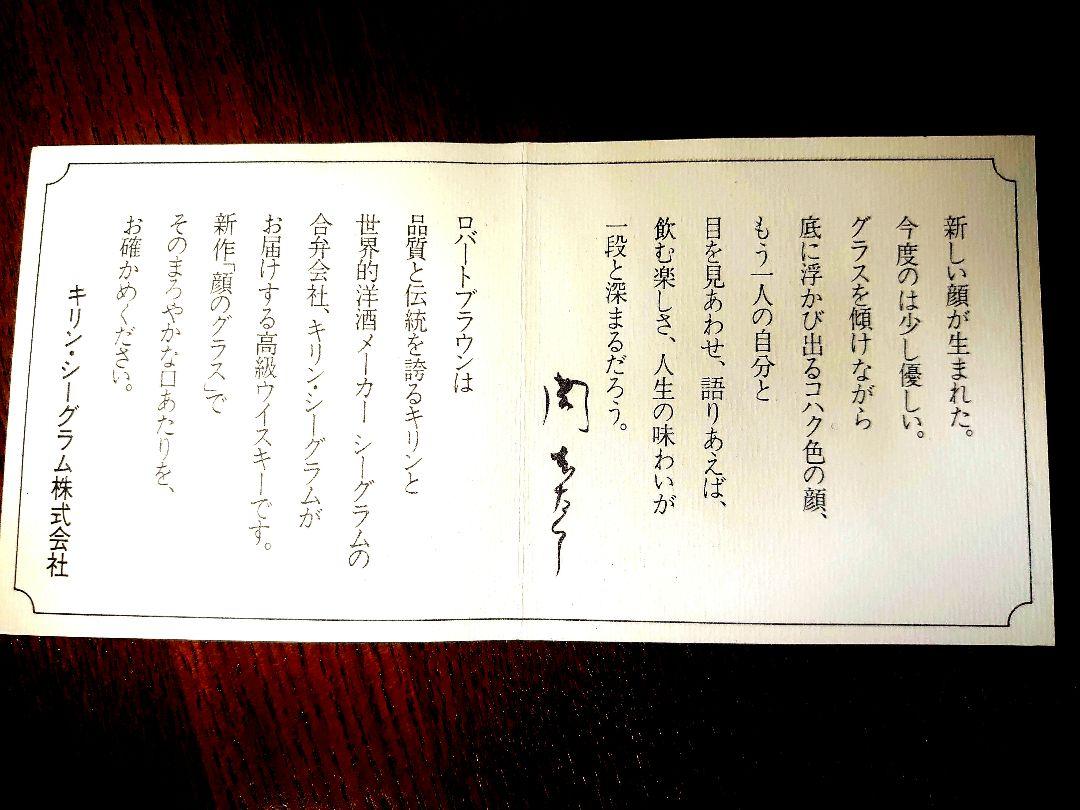 新しい顔が生まれた。
今度のは少し優しい。
グラスを傾けながら
底に浮かび出るコハク色の顔、
もう一人の自分と
目を見あわせ、語りあえば、
飲む楽しさ、人生の味わいが
一段と深まるだろう。
ロバートブラウンは
品質と伝統を誇るキリンと
世界的洋酒メーカー シーグラムの
合弁会社、キリン・シーグラムが
お届けする高級ウイスキーです。
新作「顔のグラス」で
そのまろやかな口あたりを、
お確かめください。
キリン・シーグラム株式会社